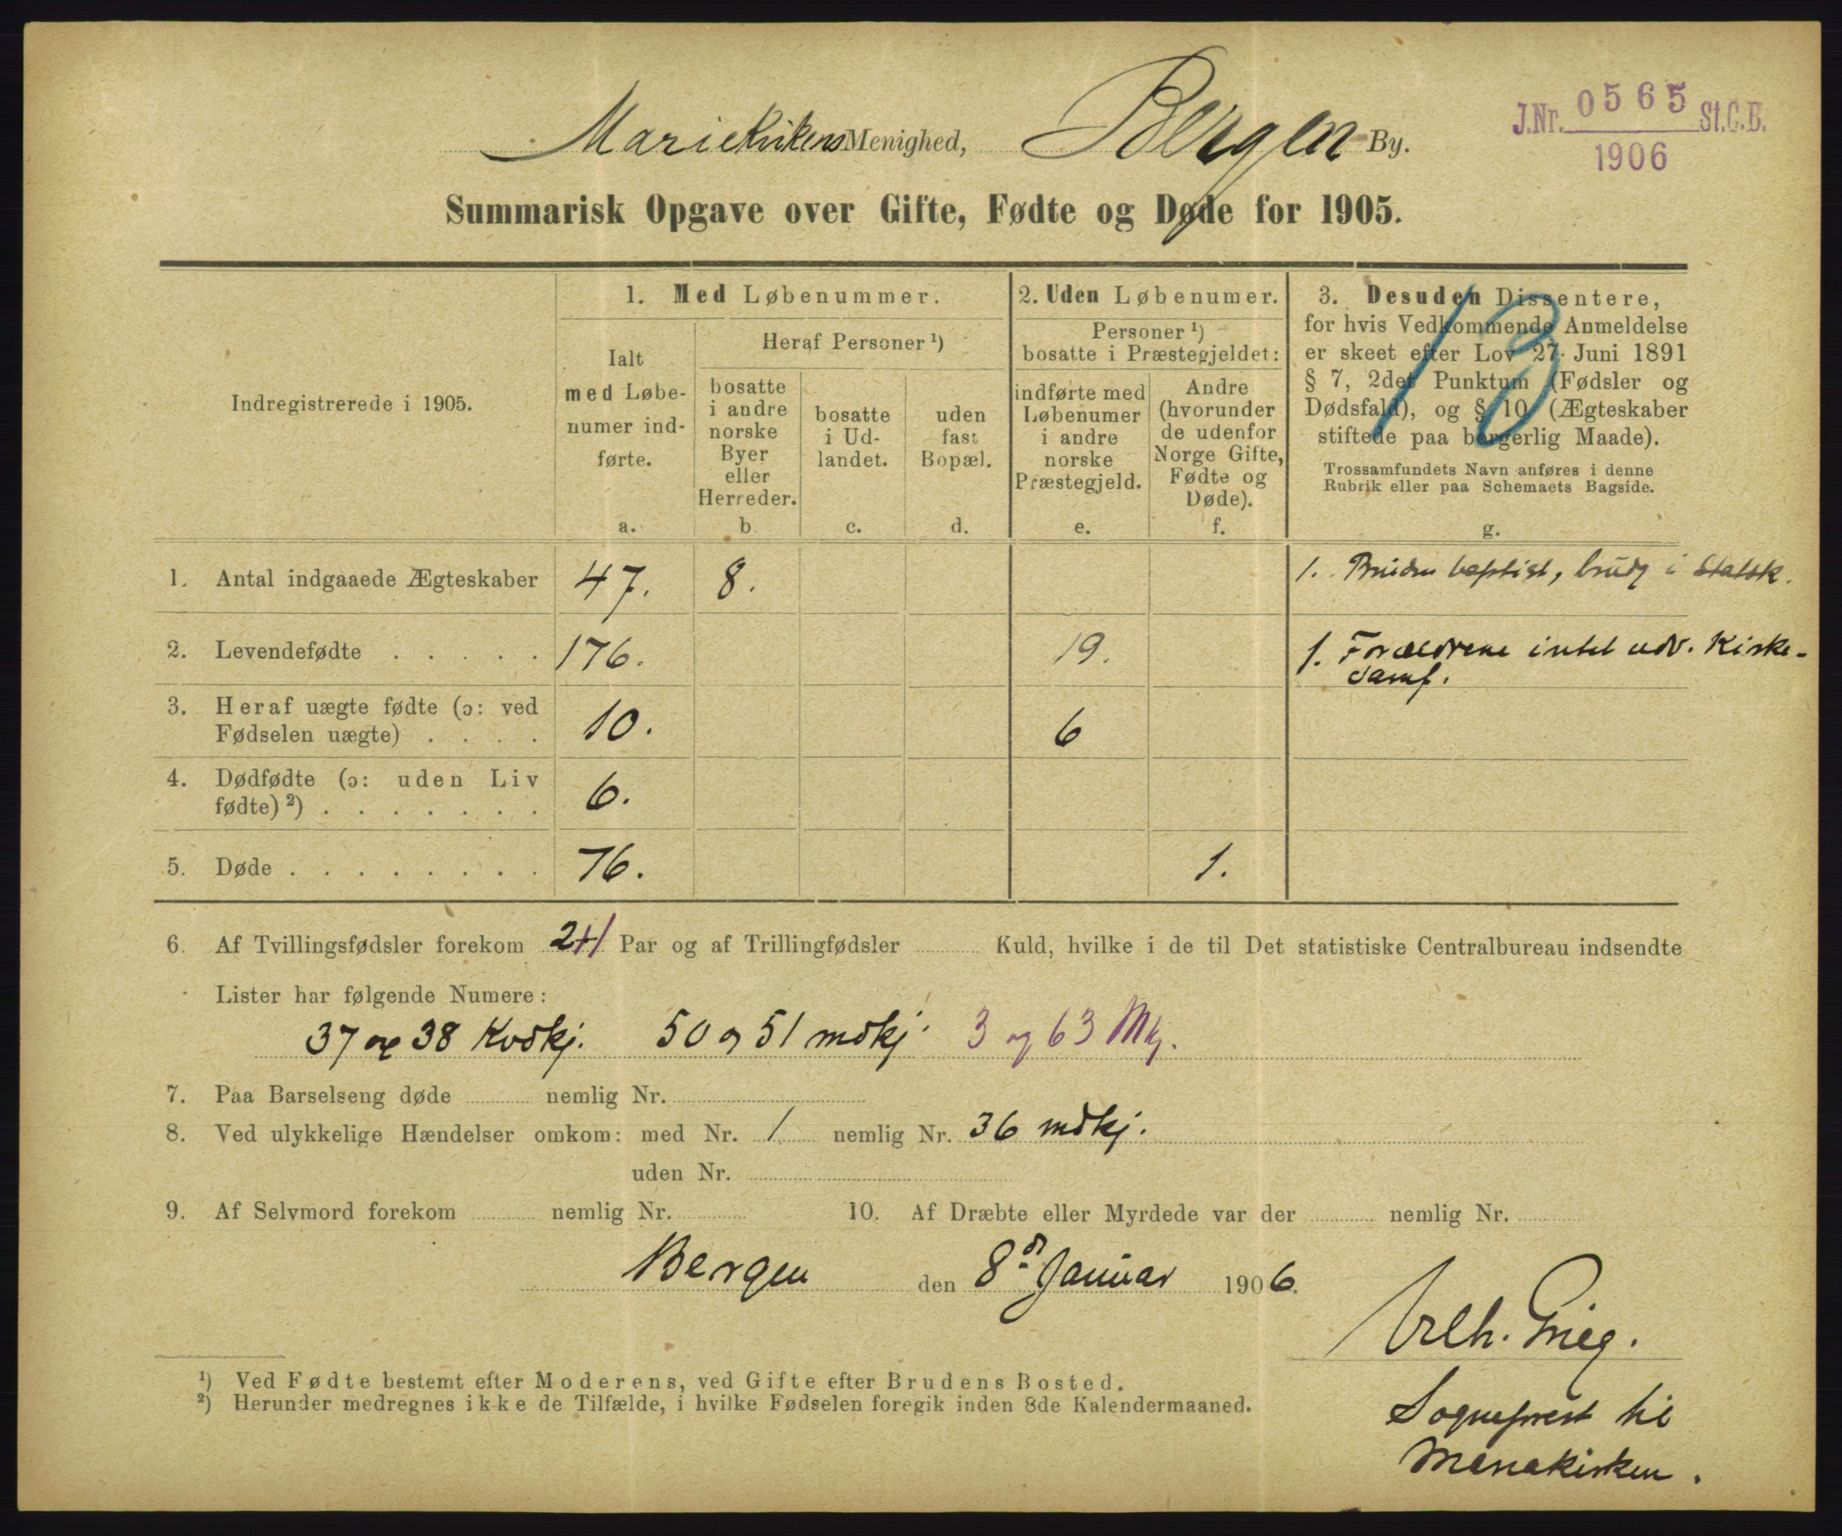 Mariekirkens Menighed, Bergen By.
J.Nr. 0565 St.C.B.
1906
Summarisk Opgave over Gifte, Fødte og Døde for 1905.
13
Indregistrerede i 1905.
1. Med Løbenummer.
Ialt
med Løbe-
numer ind-
førte.
a.
Heraf Personer ¹)
bosatte
i andre
norske
Byer
eller
Herreder.
b
bosatte
i Ud-
landet.
c.
uden
fast
Bopæl.
d.
2. Uden Løbenumer.
Personer ¹)
bosatte i Præstegjeldet:
indførte med
Løbenumer
i andre
norske
Præstegjeld.
e.
Andre
(hvorunder
de udenfor
Norge Gifte,
Fødte og
Døde).
f.
3. Desuden Dissentere,
for hvis Vedkommende Anmeldelse
er skeet efter Lov 27 Juni 1891
§ 7, 2det Punktum (Fødsler og
Dødsfald), og § 10 (Ægteskaber
stiftede paa borgerlig Maade).
Trossamfundets Navn anføres i denne
Rubrik eller paa Schemaets Bagside.
g.
1. Antal indgaaede Ægteskaber 47. 8. 1. baptist, brudg i Statsk.
2. Levendefødte . . . . . 176. 19. 1. Forældrene intet udv. Kirke-
samf.
3. Heraf uægte fødte (ɔ: ved
Fødselen uægte) . . . . 10. 6
4. Dødfødte (ɔ: uden Liv
fødte) ²) . . . . . . . 6.
5. Døde . . . . . . . . 76. 1.
6. Af Tvillingsfødsler forekom 2+1 Par og af Trillingfødsler Kuld, hvilke i de til Det statistiske Centralbureau indsendte
Lister har følgende Numere:
37 og 38 Kvdkj. 50 og 51 mdkj. 3 og 63 Mkj.
7. Paa Barselseng døde nemlig Nr.
8. Ved ulykkelige Hændelser omkom: med Nr. 1 nemlig Nr. 36 mdkj.
uden Nr.
9. Af Selvmord forekom nemlig Nr.
10. Af Dræbte eller Myrdede var der nemlig Nr.
Bergen den 8de Januar 1906.
Vilh. Grieg.
Sogneprest til
Mariakirken.
¹) Ved Fødte bestemt efter Moderens, ved Gifte efter Brudens Bosted.
²) Herunder medregnes ikke de Tilfælde, i hvilke Fødselen foregik inden 8de Kalendermaaned.